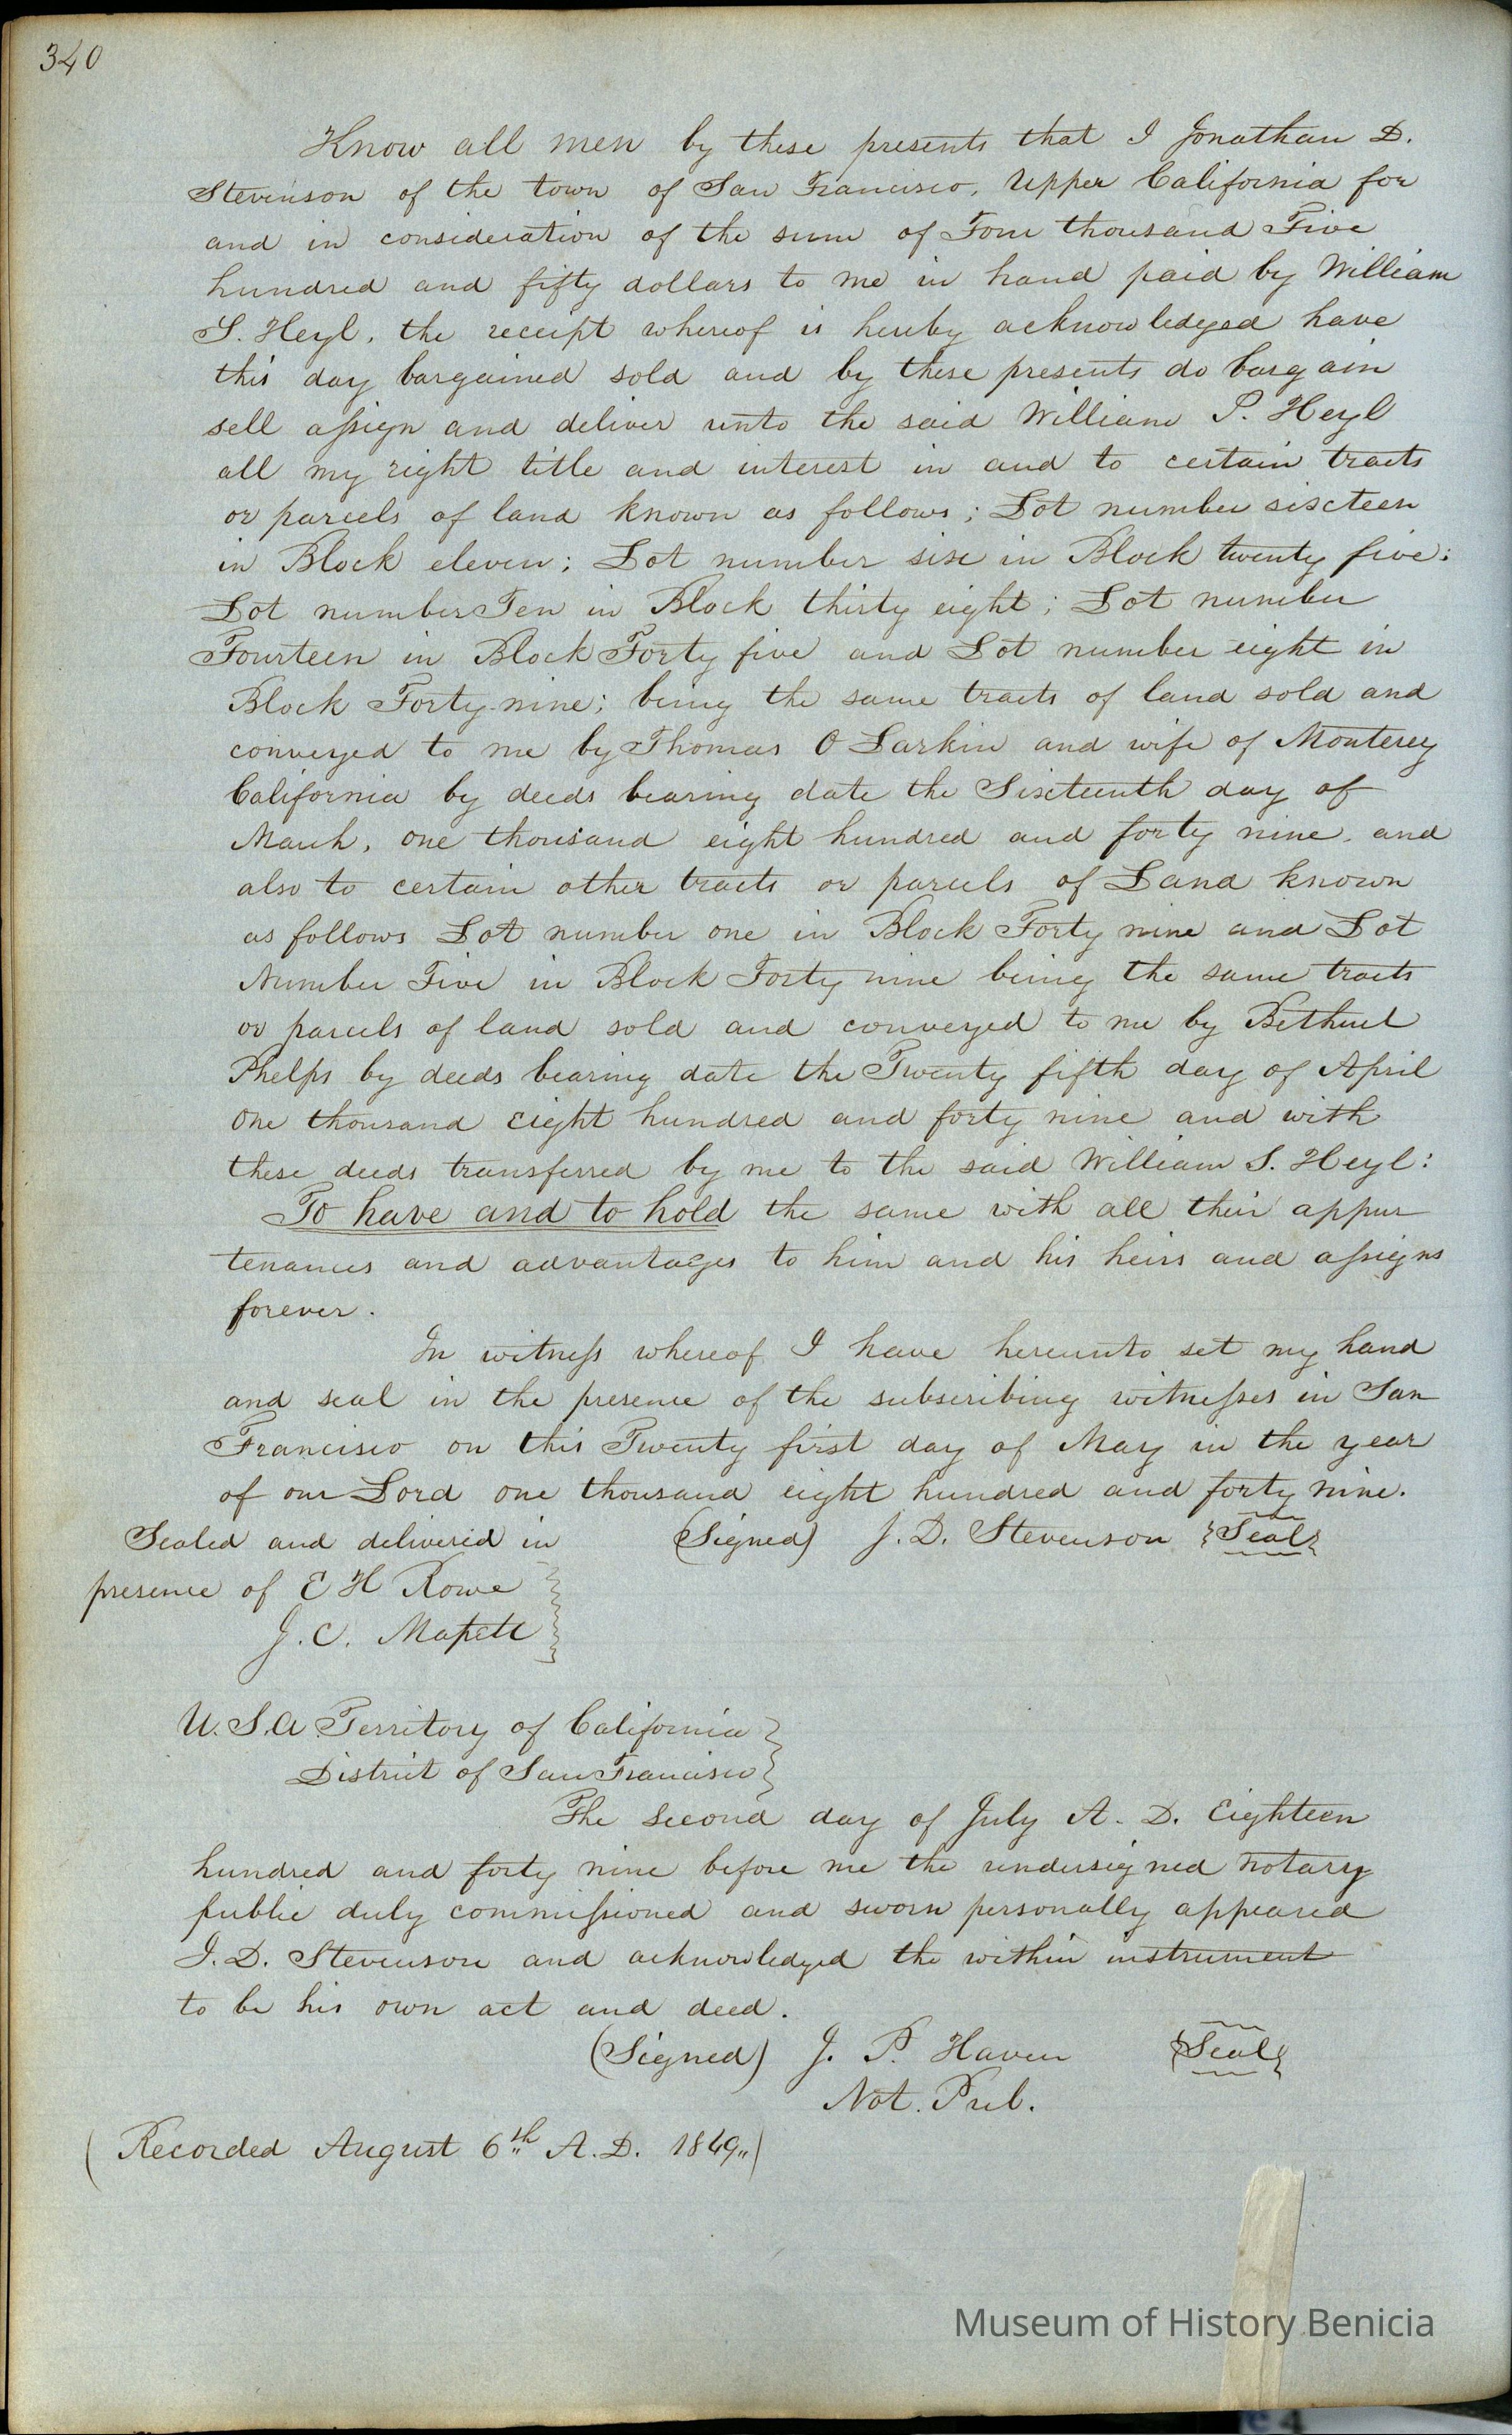 340
Know all men by these presents that I Jonathan D.
Stevenson of the town of San Francisco, Upper California for
and in consideration of the sum of Four thousand Five
hundred and fifty dollars to me in hand paid by William
S. Heyl, the receipt whereof is hereby acknowledged have
this day bargained sold and by these presents do bargain
sell assign and deliver unto the said William P. Heyl
all my right title and interest in and to certain tracts
or parcels of land known as follows; Lot number sixteen
in Block eleven; Lot number six in Block twenty five;
Lot number Ten in Block thirty eight; Lot number
Fourteen in Block Forty five and Lot number eight in
Block Forty-nine; being the same tracts of land sold and
conveyed to me by Thomas O Larkin and wife of Monterey
California by deeds bearing date the Sixteenth day of
March, one thousand eight hundred and forty nine, and
also to certain other tracts or parcels of Land known
as follows Lot number one in Block Forty nine and Lot
Number Five in Block Forty nine being the same tracts
or parcels of land sold and conveyed to me by Bethuel
Phelps by deeds bearing date the Twenty fifth day of April
One thousand eight hundred and forty nine and with
these deeds transferred by me to the said William S. Heyl:
To have and to hold the same with all their appur
tenances and advantages to him and his heirs and assigns
forever.
In witness whereof I have hereunto set my hand
and seal in the presence of the subscribing witnesses in San
Francisco on this Twenty first day of May in the year
of our Lord one thousand eight hundred and forty nine.
Sealed and delivered in (Signed) J. D. Stevenson {Seal}
presence of E H Rowe
J. C.
U.S.A. Territory of California
District of San Francisco
The Second day of July A. D. Eighteen
hundred and forty nine before me the undersigned Notary
public duly commissioned and sworn personally appeared
J. D. Stevenson and acknowledged the within instrument
to be his own act and deed.
(Signed) J. P. Haven {Seal}
Not. Pub.
(Recorded August 6th A. D. 1849,,)
Museum of History Benicia